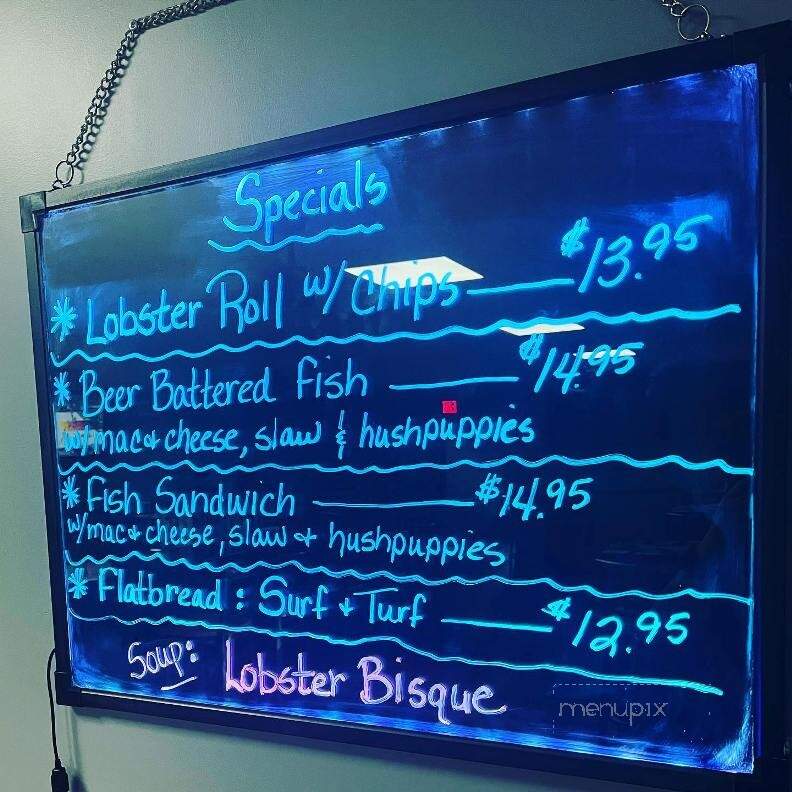 Specials
* Lobster Roll w/ Chips — $13.95
* Beer Battered Fish — $14.95
w/ mac & cheese, slaw & hushpuppies
* Fish Sandwich — $14.95
w/ mac & cheese, slaw & hushpuppies
* Flatbread: Surf & Turf — $12.95
Soup: Lobster Bisque
menupix